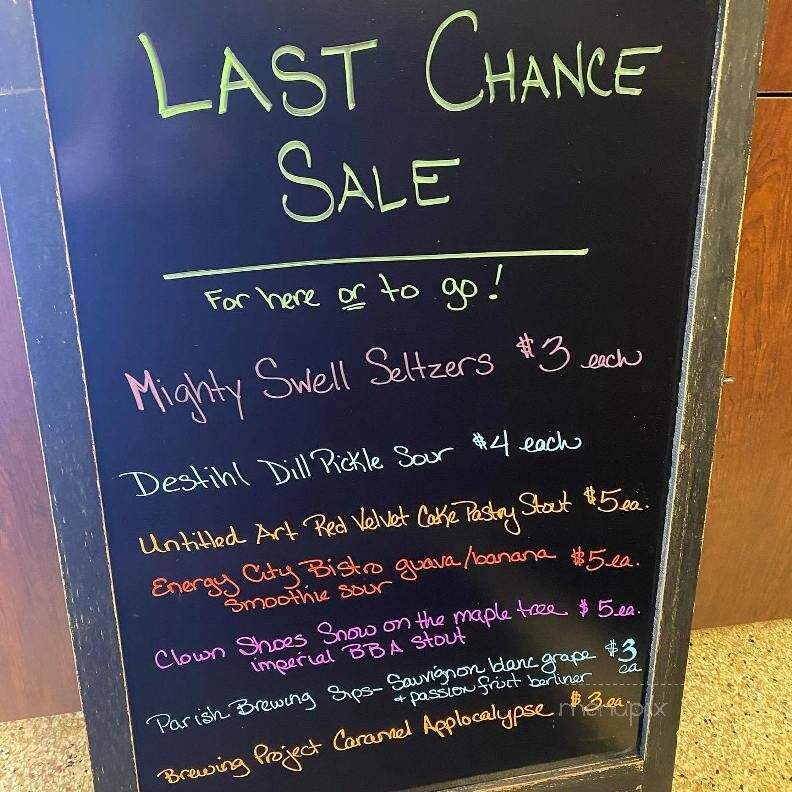 LAST CHANCE
SALE
For here or to go!
Mighty Swell Seltzers $3 each
Destihl Dill Pickle Sour $4 each
Untitled Art Red Velvet Cake Pastry Stout $5 ea.
Energy City Bistro guava/banana $5 ea.
smoothie sour
Clown Shoes Snow on the maple tree $5 ea.
imperial BBA stout
Parish Brewing Sips- Sauvignon blanc grape $3 ea
+ passion fruit berliner
Brewing Project Caramel Applocalypse $3 ea.
menupix